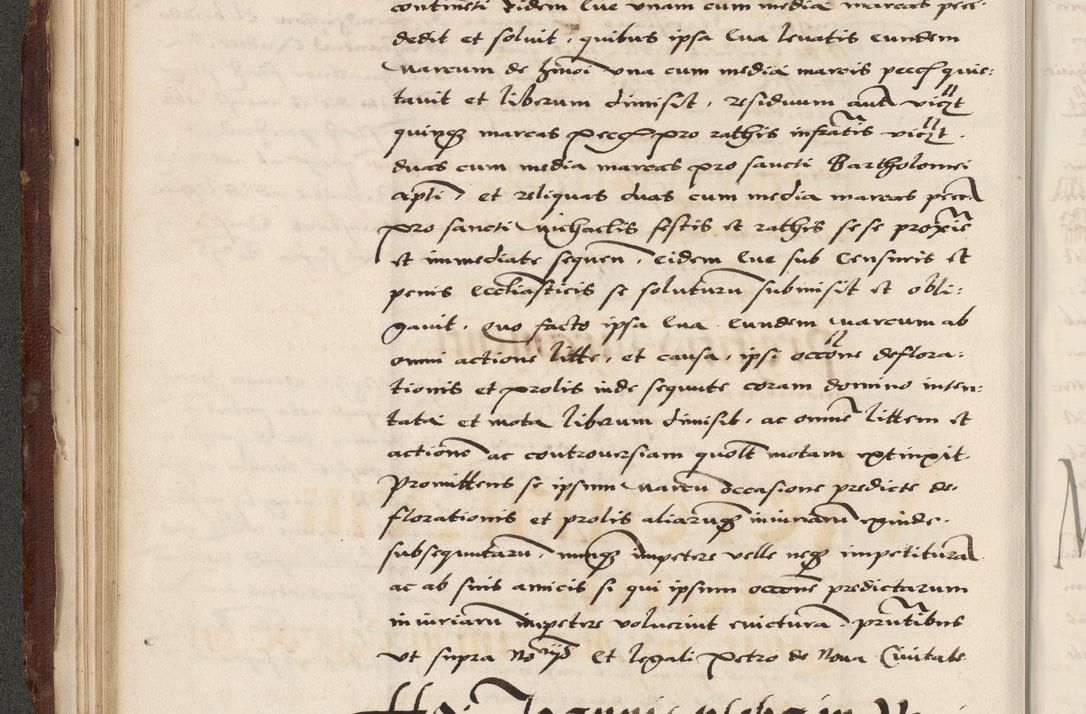 continenti eidem Eve unam cum media marcas pecc.
dedit et solvit, quibus ipsa Eva levatis eundem
Marcum de hmoi una cum media marcis pecc quie:
tavit et liberum dimisit, residuum aut vicz
quinqz marcas pecc pro rathis infratis vicz.
duas cum media marcas pro sancti Bartholomei
apli, et reliquas duas cum media marcas pecc
pro sancti Michaelis festis et rathis sese proxie
et immediate sequen, eidem Eve sub Censuris et
penis Eccliasticis se soluturum submisit et obli:
gavit. Quo facto ipsa Eva eundem Marcum ab
omni actione litte, et causa, ipsi occone deflora:
tionis et prolis inde sequute coram domino inten:
tata et mota liberum dimisit, ac omnem littem et
actione ac controversiam quolt motam extinxit.
Promittens se ipsum Marcu occasione predicte de-
florationis et prolis aliarumqz iniuriaru exinde.
subsequutaru, nunqz impetere velle neqz impetitura
ac ab suis amicis si qui ipsum occone predictarum
iniuriaru impetere voluerint evictura, pntibus
ut supra et legali Petro de Nova Civitate